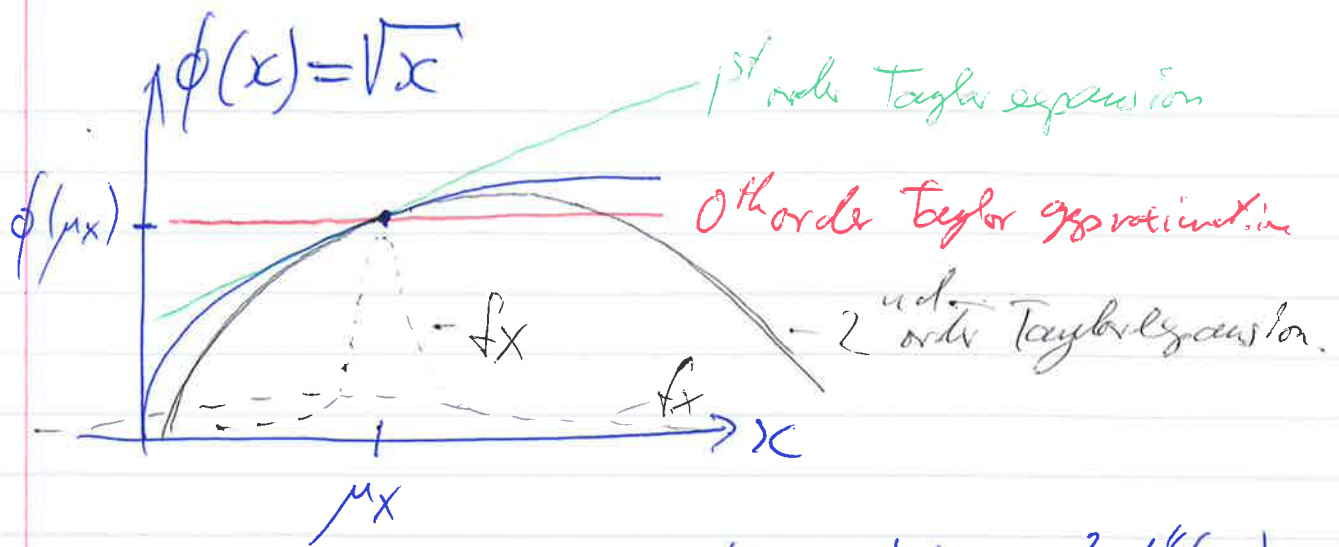 ϕ(x)=√x
1st order Taylor expansion
ϕ(μx)
0th order Taylor approximation
fx
2nd order Taylor expansion.
fx
x
μx